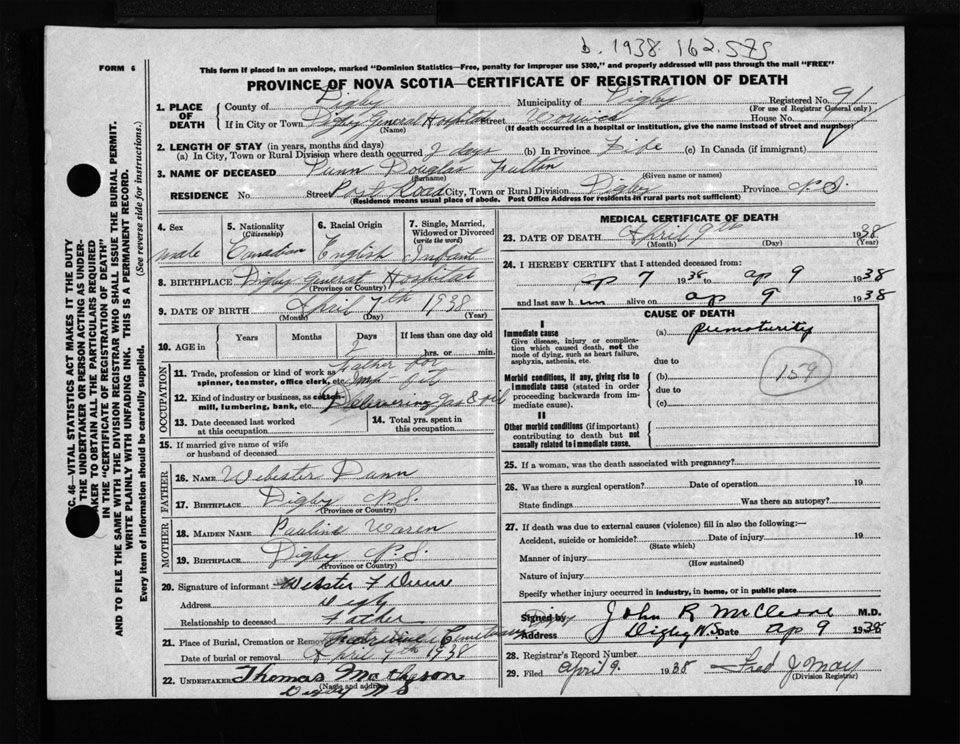 b. 1938. 162.575
FORM 6
This form if placed in an envelope, marked "Dominion Statistics—Free, penalty for improper use $300," and properly addressed will pass through the mail "FREE"
PROVINCE OF NOVA SCOTIA—CERTIFICATE OF REGISTRATION OF DEATH
1. PLACE OF DEATH
County of Digby Municipality of Digby Registered No. 91
(For use of Registrar General only)
If in City or Town Digby General Hospital Street House No.
(Name) (If death occurred in a hospital or institution, give the name instead of street and number)
2. LENGTH OF STAY (in years, months and days)
(a) In City, Town or Rural Division where death occurred 2 days (b) In Province Life (c) In Canada (if immigrant)
3. NAME OF DECEASED Dunn Douglas
(Surname) (Given name or names)
RESIDENCE No. Street Post Road City, Town or Rural Division Digby Province N.S.
(Residence means usual place of abode. Post Office Address for residents in rural parts not sufficient)
4. Sex
male
5. Nationality
(Citizenship)
Canadian
6. Racial Origin
English
7. Single, Married, Widowed or Divorced
(write the word)
Infant
8. BIRTHPLACE Digby General Hospital
(Province or Country)
9. DATE OF BIRTH April 7th 1938
(Month) (Day) (Year)
10. AGE in Years Months Days If less than one day old
2 hrs. or min.
OCCUPATION
11. Trade, profession or kind of work as spinner, teamster, office clerk, etc. Father for
12. Kind of industry or business, as cotton mill, lumbering, bank, etc. Delivering gas & oil
13. Date deceased last worked at this occupation
14. Total yrs. spent in this occupation
15. If married give name of wife or husband of deceased
FATHER
16. NAME Webster Dunn
17. BIRTHPLACE Digby N.S.
(Province or Country)
MOTHER
18. MAIDEN NAME Pauline Waren
19. BIRTHPLACE Digby N.S.
(Province or Country)
20. Signature of informant Webster F Dunn
Address Digby
Relationship to deceased Father
21. Place of Burial, Cremation or Removal Cemetery
Date of burial or removal April 9th 1938
22. UNDERTAKER Thomas Matheson
(Name and address)
Digby N S
MEDICAL CERTIFICATE OF DEATH
23. DATE OF DEATH April 9th 1938
(Month) (Day) (Year)
24. I HEREBY CERTIFY that I attended deceased from:
ap 7 1938 to ap 9 1938
and last saw him alive on ap 9 1938
CAUSE OF DEATH
I
Immediate cause
Give disease, injury or complication which caused death, not the mode of dying, such as heart failure, asphyxia, asthenia, etc.
(a) prematurity
due to
Morbid conditions, if any, giving rise to immediate cause (stated in order proceeding backwards from immediate cause).
(b)
due to
(c)
159
II
Other morbid conditions (if important) contributing to death but not causally related to immediate cause.
25. If a woman, was the death associated with pregnancy?
26. Was there a surgical operation? Date of operation 19
State findings Was there an autopsy?
27. If death was due to external causes (violence) fill in also the following:—
Accident, suicide or homicide? Date of injury 19
(State which)
Manner of injury
(How sustained)
Nature of injury
Specify whether injury occurred in industry, in home, or in public place
Signed by John R McCleave M.D.
Address Digby N.S. Date ap 9 1938
28. Registrar's Record Number
29. Filed April 9. 1938 Fred J May
(Division Registrar)
C. 46—VITAL STATISTICS ACT MAKES IT THE DUTY
THE UNDERTAKER OR PERSON ACTING AS UNDER-
AKER TO OBTAIN ALL THE PARTICULARS REQUIRED
IN THE "CERTIFICATE OF REGISTRATION OF DEATH"
AND TO FILE THE SAME WITH THE DIVISION REGISTRAR WHO SHALL ISSUE THE BURIAL PERMIT.
WRITE PLAINLY WITH UNFADING INK. THIS IS A PERMANENT RECORD.
Every item of information should be carefully supplied. (See reverse side for instructions.)